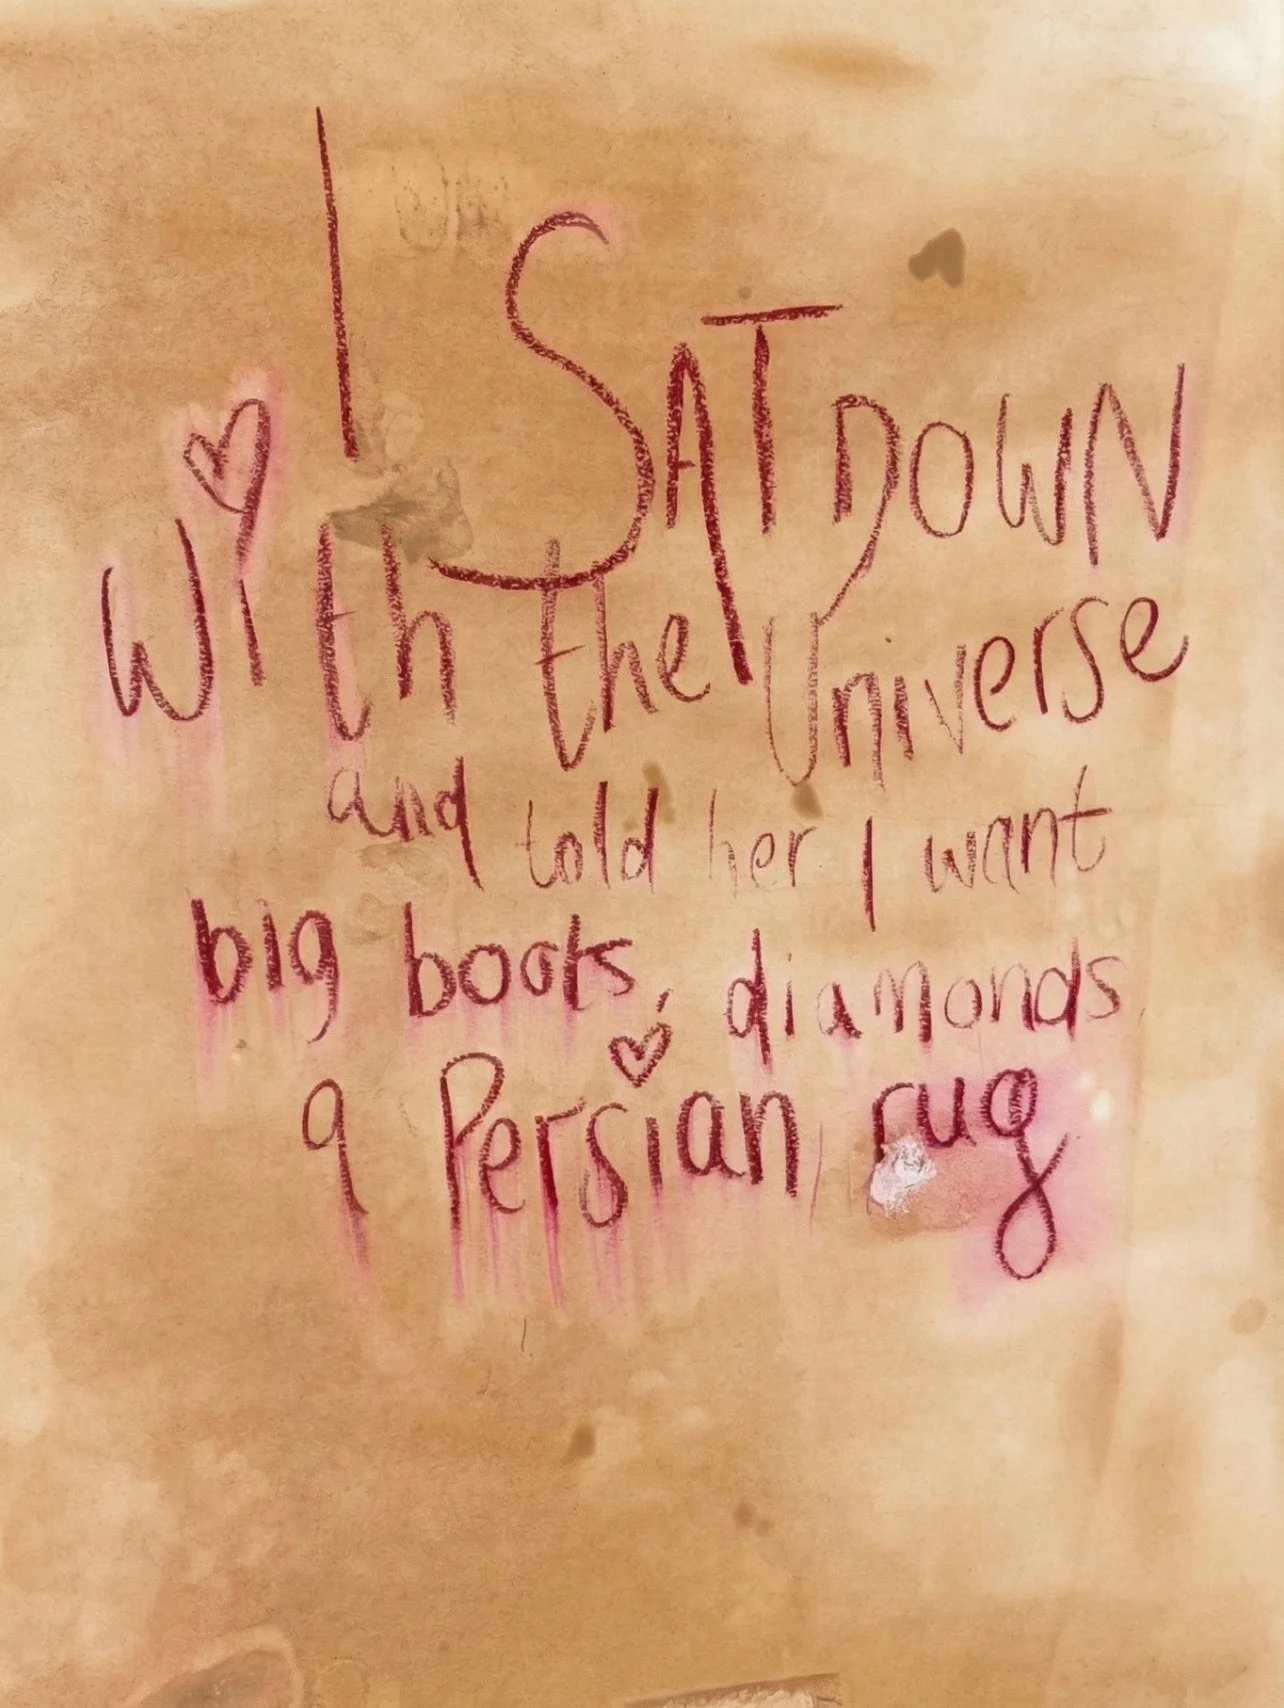 I SAT DOWN
With the Universe
and told her I want
big books, diamonds
a Persian rug